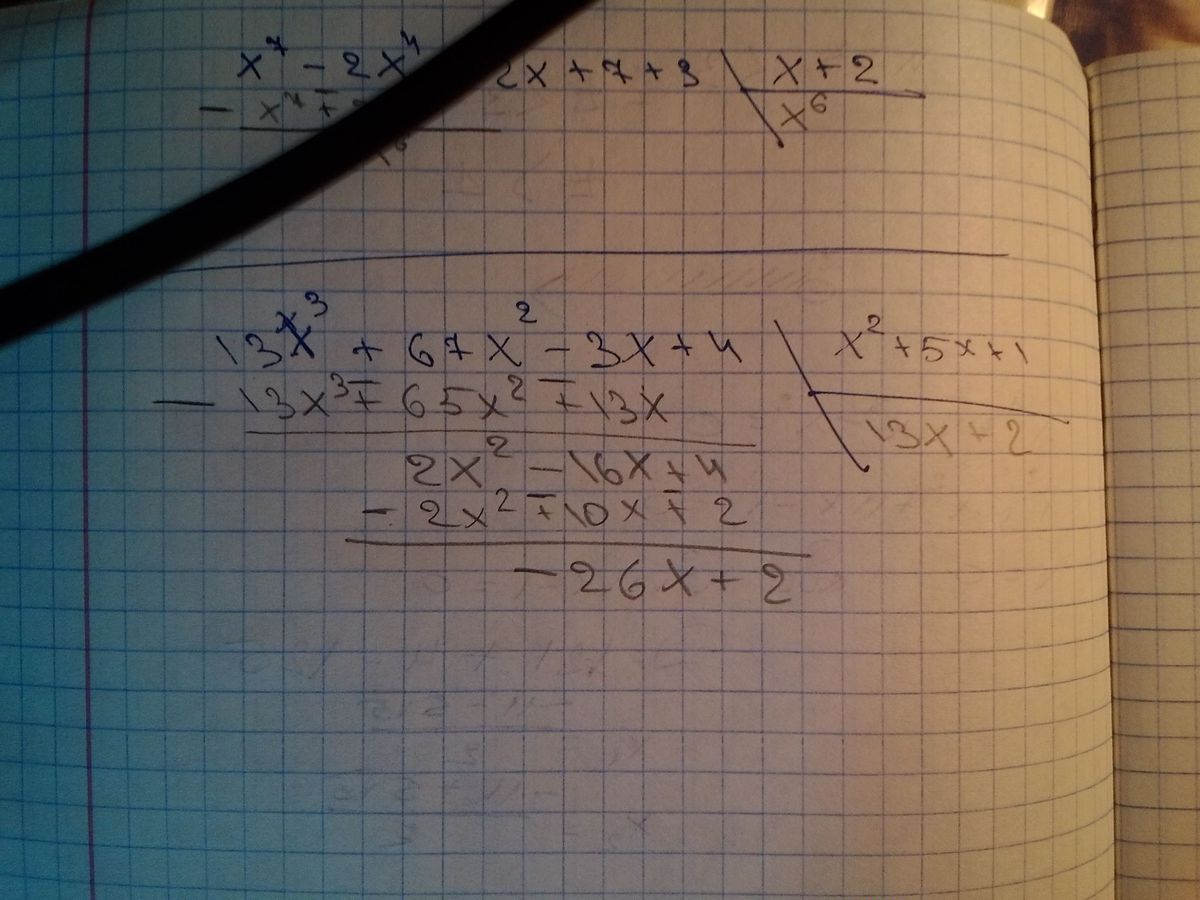 x⁷ - 2x⁴ 2x + 7 + 3 x + 2
- x⁷ + x⁶
13x³ + 67x² - 3x + 4 x² + 5x + 1
- 13x³ + 65x² + 13x 13x + 2
2x² - 16x + 4
- 2x² + 10x + 2
- 26x + 2